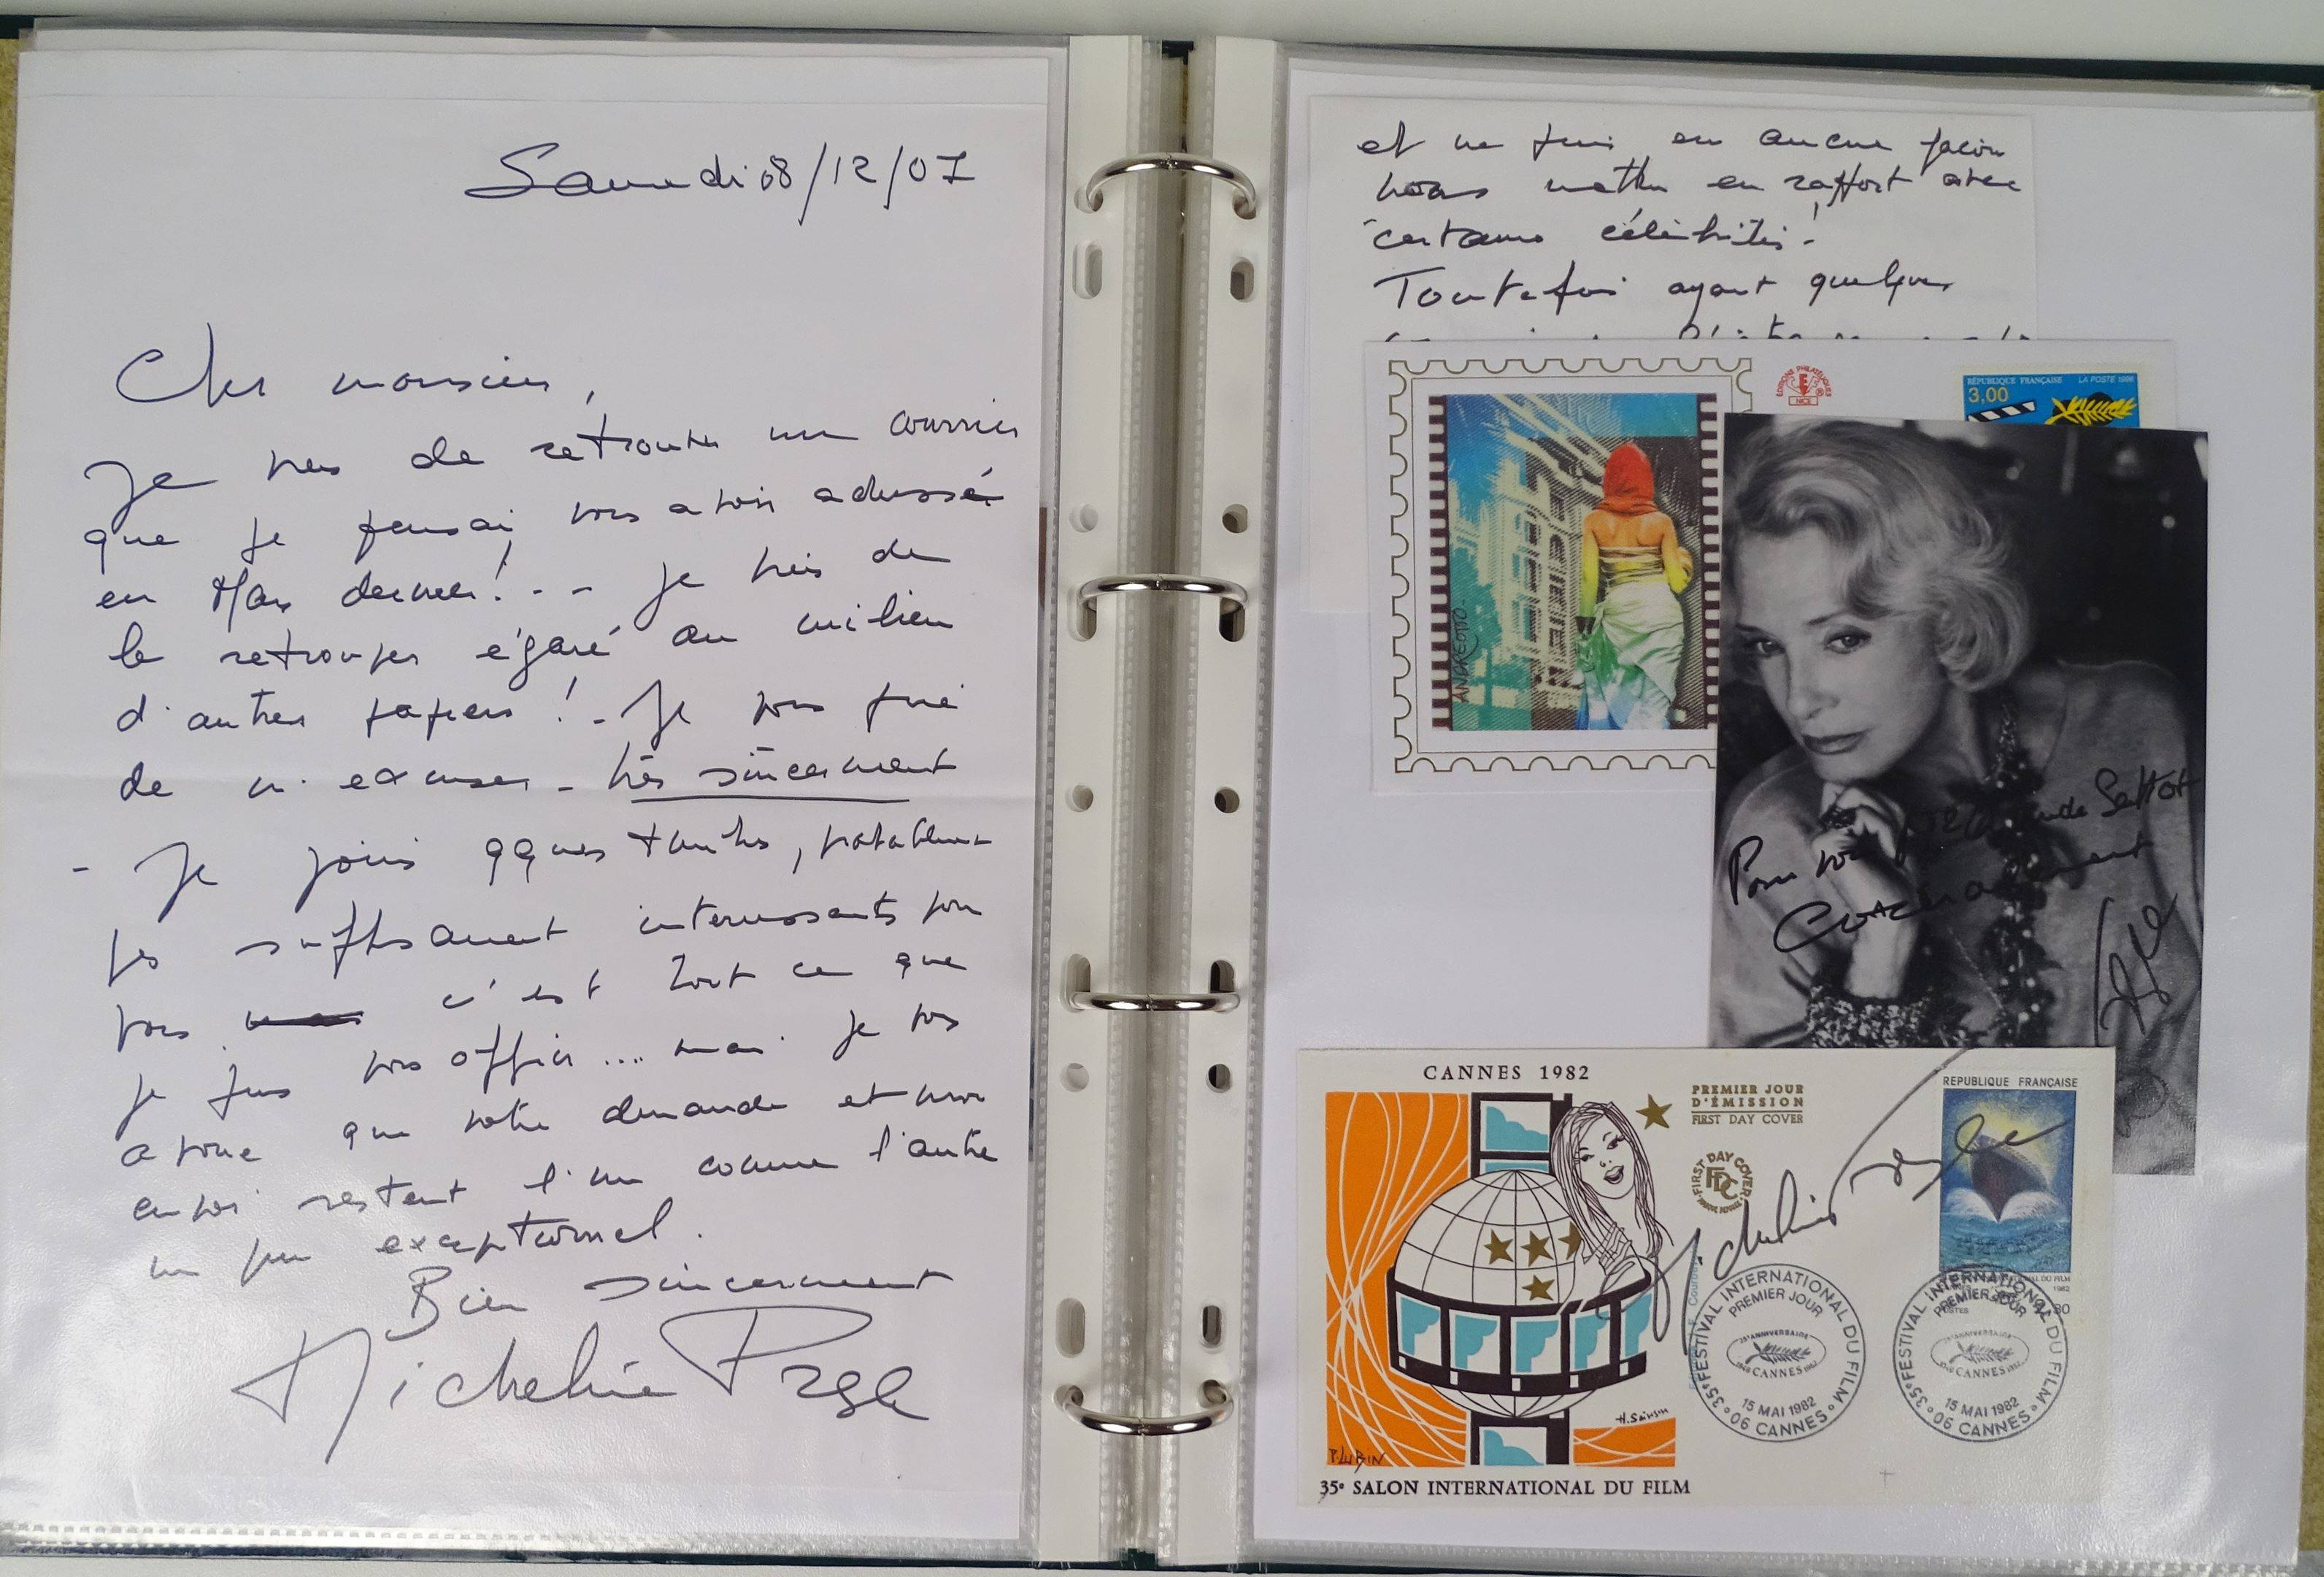 Samedi 08/12/07
Cher monsieur,
Je viens de retrouver un courrier
que je pensai vous avoir adressé
en Mars dernier! - - Je viens de
le retrouver égaré au milieu
d'autres papiers! - Je vous prie
de m'excuser - très sincèrement
- Je joins qques timbres, probablement
pas suffisament interressants pour
vous c'est tout ce que
je puis vous offrir .... mais je vous
avoue que votre demande et mon
envoi restent l'un comme l'autre
un peu exceptionnel.
Bien sincèrement
Micheline Presle
et ne puis en aucune façon
vous mettre en rapport avec
certaines célébrités!
Toutefois ayant quelques
EDITIONS PHILATELIQUES
NICE
RÉPUBLIQUE FRANÇAISE LA POSTE 1996
3,00
ANDREOTTO
Pour vous
Cordialement
CANNES 1982
PREMIER JOUR
D'ÉMISSION
FIRST DAY COVER
FIRST DAY COVER
FDC
REPUBLIQUE FRANÇAISE
Micheline Presle
35e FESTIVAL INTERNATIONAL DU FILM
PREMIER JOUR
CANNES
15 MAI 1982
06 CANNES
35e FESTIVAL INTERNATIONAL DU FILM
PREMIER JOUR
CANNES
15 MAI 1982
06 CANNES
P. LUBIN
35e SALON INTERNATIONAL DU FILM